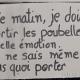 e matin, je do
rtir les poubelle
elle émotion.
ne sais même
as quoi porter